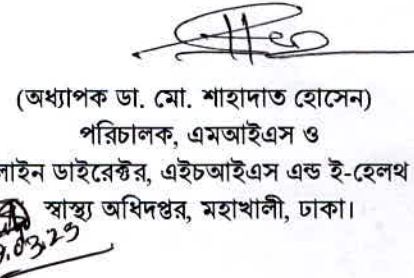 (অধ্যাপক ডা. মো. শাহাদাত হোসেন)
পরিচালক, এমআইএস ও
লাইন ডাইরেক্টর, এইচআইএস এন্ড ই-হেলথ
স্বাস্থ্য অধিদপ্তর, মহাখালী, ঢাকা।
.03.23